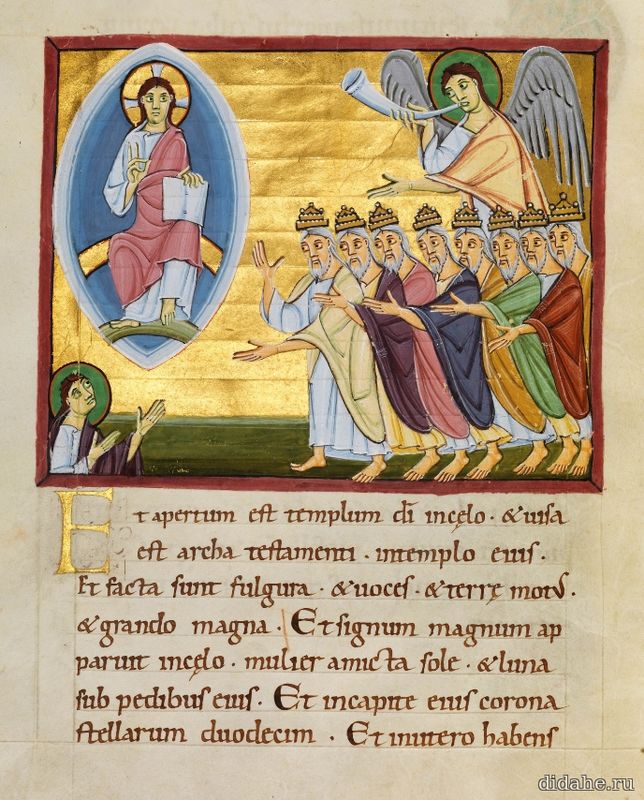 Et apertum est templum dī incęlo · &uisa
est archa testamenti · intemplo eius ·
Et facta sunt fulgura · &uoces · &terrę motꝰ ·
&grando magna · Et signum magnum ap
paruit incęlo · mulier amicta sole · &luna
sub pedibus eius · Et incapite eius corona
stellarum duodecim · Et inutero habens
didahe.ru